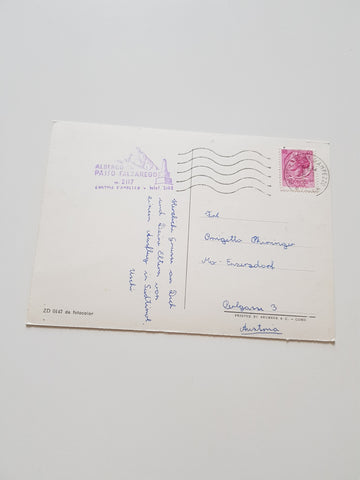 ALBERGO
PASSO FALZAREGO
m. 2117
CORTINA D'AMPEZZO - Telef. 
Herzliche Grüsse an Dich
und Deine Eltern von
einem Ausflug in Südtirol.
Uschi
Frl.
Brigitte
Ma. Enzersdorf
3
Austria
ZD 0147 da fotocolor
PRINTED BY